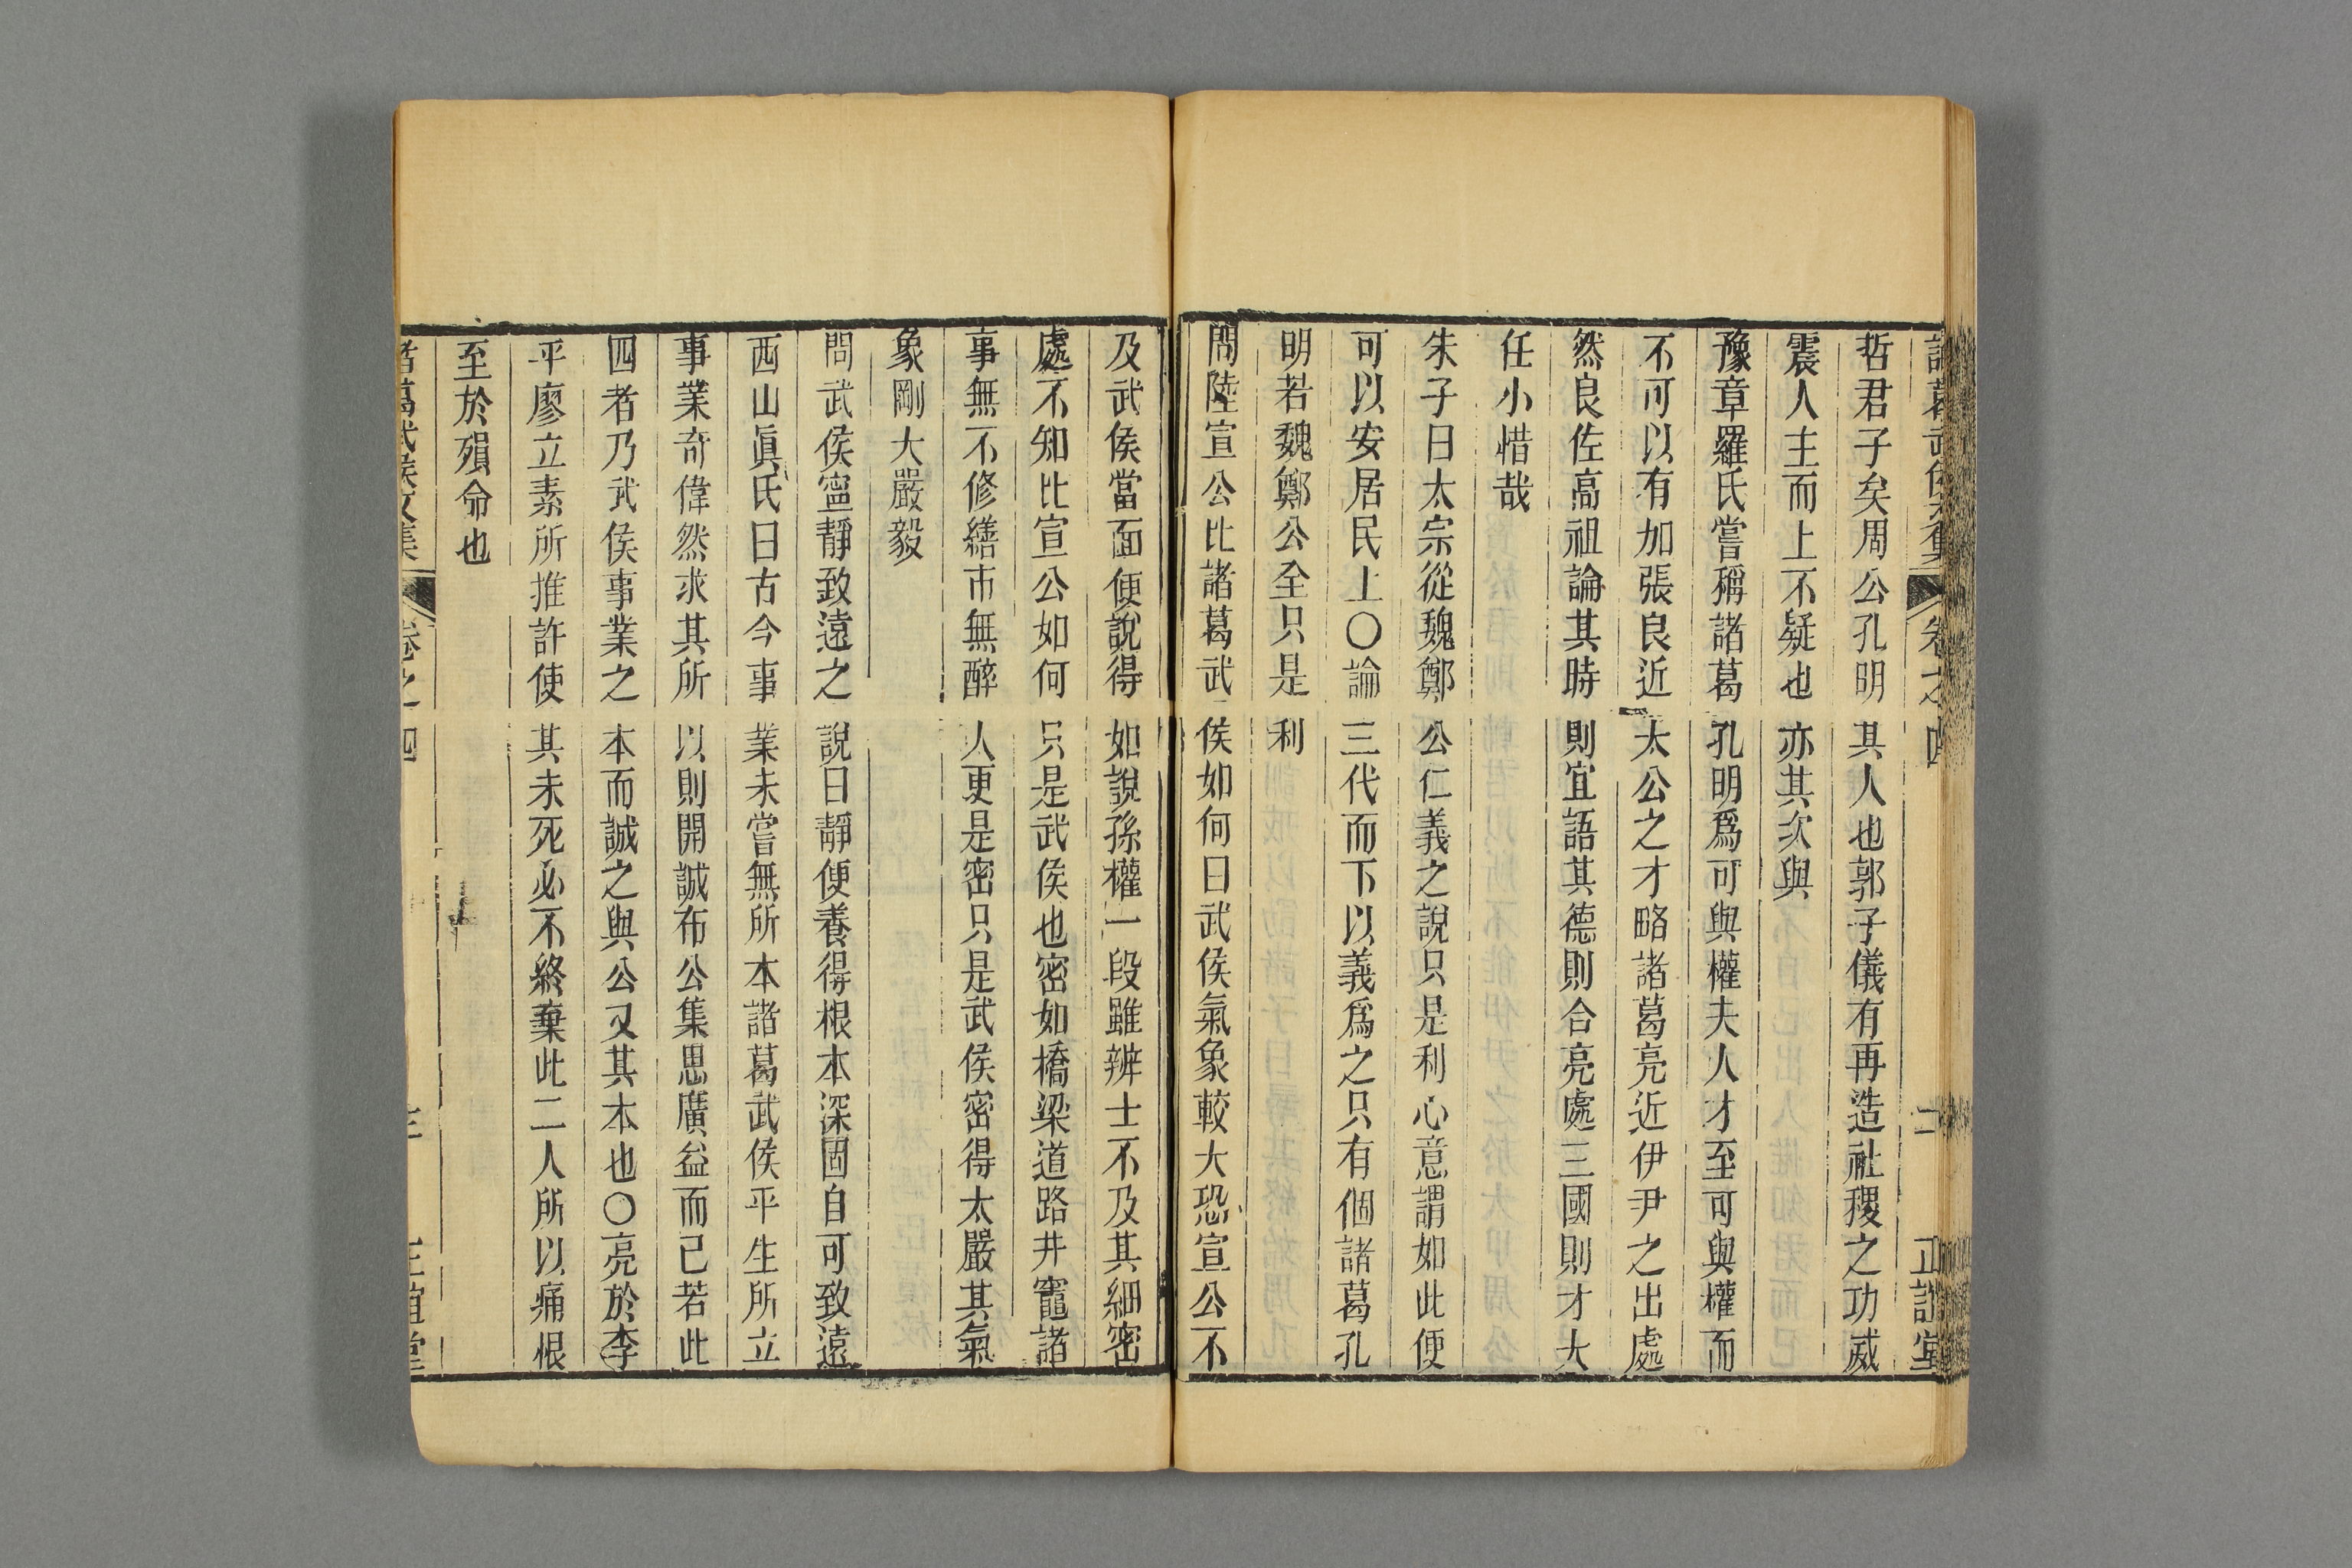 諸葛武侯文集 卷之四 二 正誼堂
哲君子矣周公孔明其人也郭子儀有再造社稷之功威
震人主而上不疑也亦其次與
豫章羅氏嘗稱諸葛孔明爲可與權夫人才至可與權而
不可以有加張良近太公之才略諸葛亮近伊尹之出處
然良佐高祖論其時則宜語其德則合亮處三國則才大
任小惜哉
朱子曰太宗從魏鄭公仁義之說只是利心意謂如此便
可以安居民上〇論三代而下以義爲之只有個諸葛孔
明若魏鄭公全只是利
問陸宣公比諸葛武侯如何曰武侯氣象較大恐宣公不
及武侯當面便說得如說孫權一段雖辨士不及其細密
處不知比宣公如何只是武侯也密如橋梁道路井竈諸
事無不修繕市無醉人更是密只是武侯密得太嚴其氣
象剛大嚴毅
問武侯寧靜致遠之說曰靜便養得根本深固自可致遠
西山眞氏曰古今事業未嘗無所本諸葛武侯平生所立
事業奇偉然求其所以則開誠布公集思廣益而已若此
四者乃武侯事業之本而誠之與公又其本也〇亮於李
平廖立素所推許使其未死必不終棄此二人所以痛恨
至於殞命也
諸葛武侯文集 卷之四 三 正誼堂